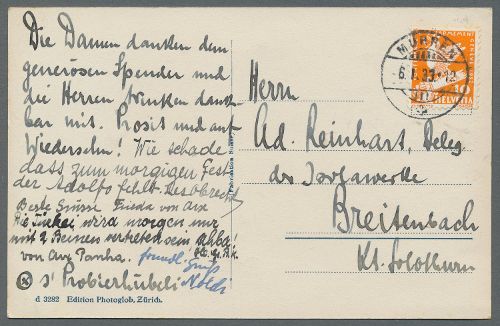 Die Damen danken dem
generösen Spender und
die Herren trinken dank-
bar mit. Prosit und auf
Wiedersehn! Wie schade
dass zum morgigen Fest
der Adolfo fehlt.
Beste Grüsse Frieda von Arx
Die Türkei wird morgen nur
mit 2 Beinen vertreten sein
von Arx
freundl. Gruss
Noldi
s' Probierhübeli
d 3282 Edition Photoglob, Zürich.
MÜRREN
HELVETIA
10
Herrn
Ad. Reinhart, Deleg.
der Isolawerke
Breitenbach
Kt. Solothurn